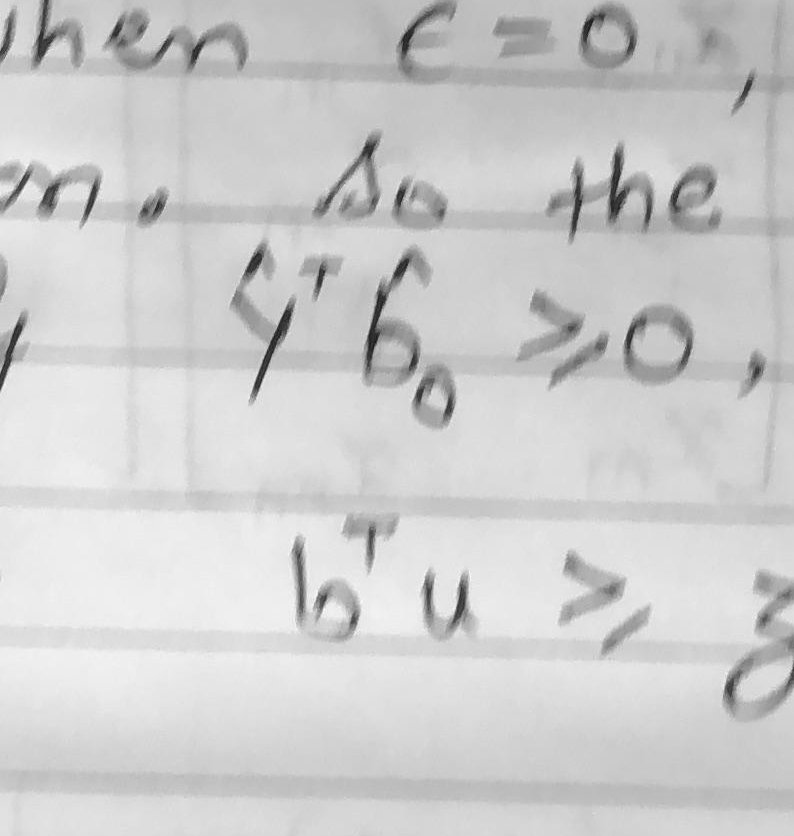 when ε = 0,
so the
yᵀb̂₀ ≥ 0,
bᵀu ≥ z